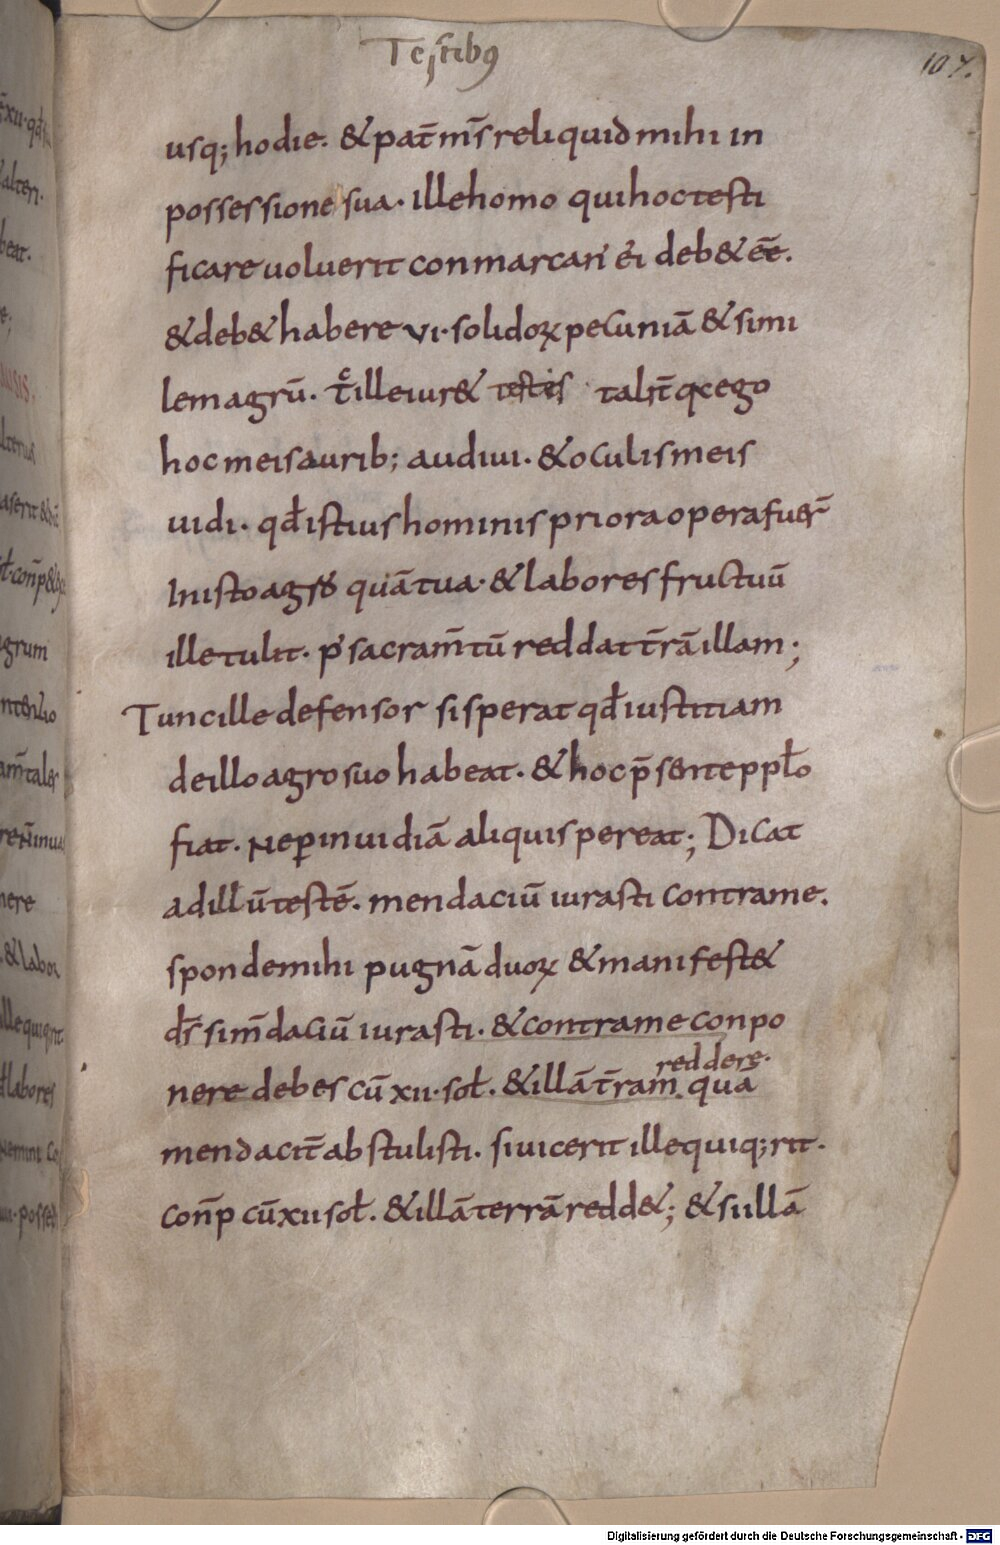 Testibꝯ
107.
usq; hodie. & pat̄ ms̄ reliquid mihi in
possessione sua. ille homo qui hoc testi
ficare uoluerit conmarcan' ei deb& ēē.
& deb& habere vi. solidoꝝ pecuniā & simi
lem agrū. t̄c̊ ille iur& testis talit̄ qc ego
hoc meis aurib; audiui. & oculis meis
uidi. qđ istius hominis priora opera fuer̄
In isto agro quā tua. & labores fructuū
ille tulit. p' sacram̄tū reddat t̄rā illam;
Tunc ille defensor si sperat qđ iustitiam
de illo agro suo habeat. & hoc p̄sente pplo
fiat. Ne ꝑ inuidiā aliquis pereat; Dicat
ad illū testē. mendaciū iurasti contra me.
sponde mihi pugnā duoꝝ & manifest&
ds̄ si m̄daciū iurasti. & contra me conpo
nere debes cū xii. sol. & illā t̄ram. quā
reddere.
mendacit̄ abstulisti. si uicerit ille qui q;rit.
con̄p cū xii sol. & illā terrā redd&; & si illā
Digitalisierung gefördert durch die Deutsche Forschungsgemeinschaft - DFG